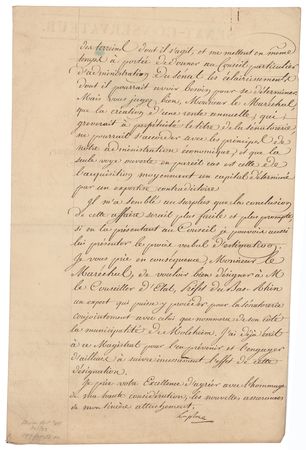 du terrein dont il s'agit, et me mettent en même
temps à portée de donner au Conseil particulier
d'administration du senat les éclaircissements
dont il pourrait avoir besoin pour se déterminer.
Mais vous jugez bien, Monsieur le Maréchal
que la création d'une rente annuelle, qui
greverait à perpétuité le titre de la senatorerie
ne pourrait s'accorder avec les principes de
notre administration économique, et que la
seule voye ouverte en pareil cas est celle de
l'acquisition moyennant un capital déterminé
par un expertise contradictoire
Il m'a semblé au surplus que la conclusion
de cette affaire serait plus facile et plus prompte,
si en la présentant au Conseil je pouvais aussi
lui présenter le procès verbal d'estimation.
Je vous prie en conséquence, Monsieur le
Maréchal, de vouloir bien désigner à M
le Conseiller d'Etat, Préfet du Bas-Rhin
un expert qui puisse y procéder pour la Sénatorerie
conjointement avec celui que nommera de son côté
la municipalité de Molsheim. J'ai déjà écrit
à ce Magistrat pour l'en prévenir et l'engager
d'ailleurs à suivre incessamment l'effet de cette
désignation.
Je prie votre Excellence d'agréer avec l'hommage
de ma haute considération, les nouvelles assurances
de mon sincère attachement.
Laplace